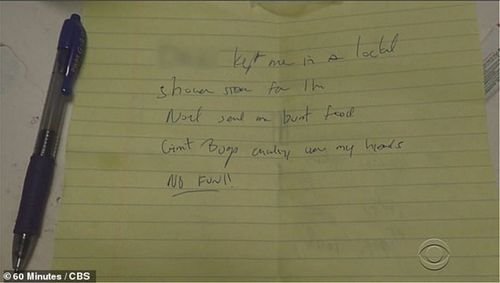 kept me in a locked
shower room for 1hr
Noel sent me burnt food
Giant Bugs crawling over my hands
NO FUN!!
60 Minutes / CBS